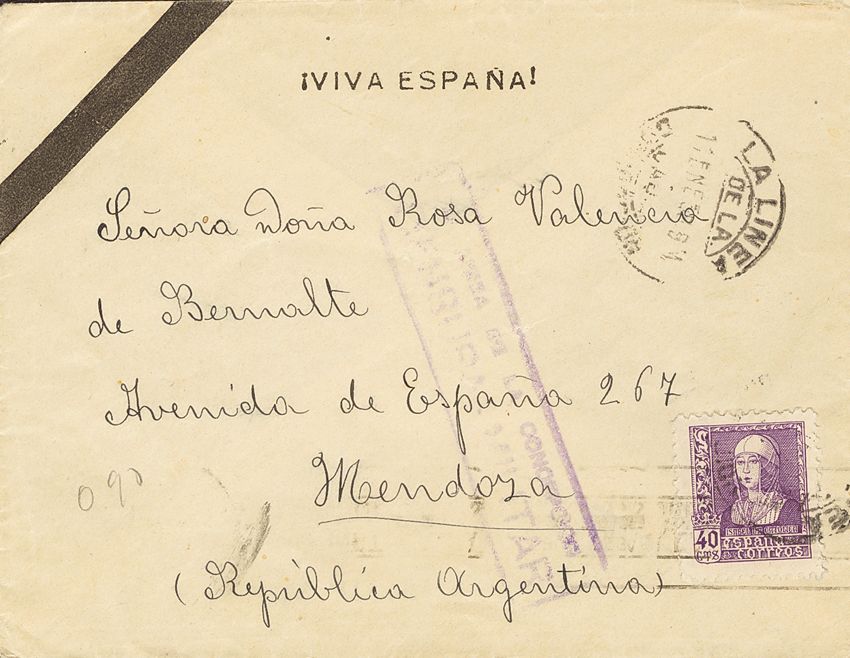 ¡VIVA ESPAÑA!
LA LINEA
DE LA
11 ENE
Señora Doña Rosa Valencia
de Bernalte
Avenida de España 267
Mendoza
(República Argentina)
090
LINEA DE LA CONCEPCION
CENSURA MILITAR
ISABEL LA CATOLICA
40 CTS
ESPAÑA
CORREOS